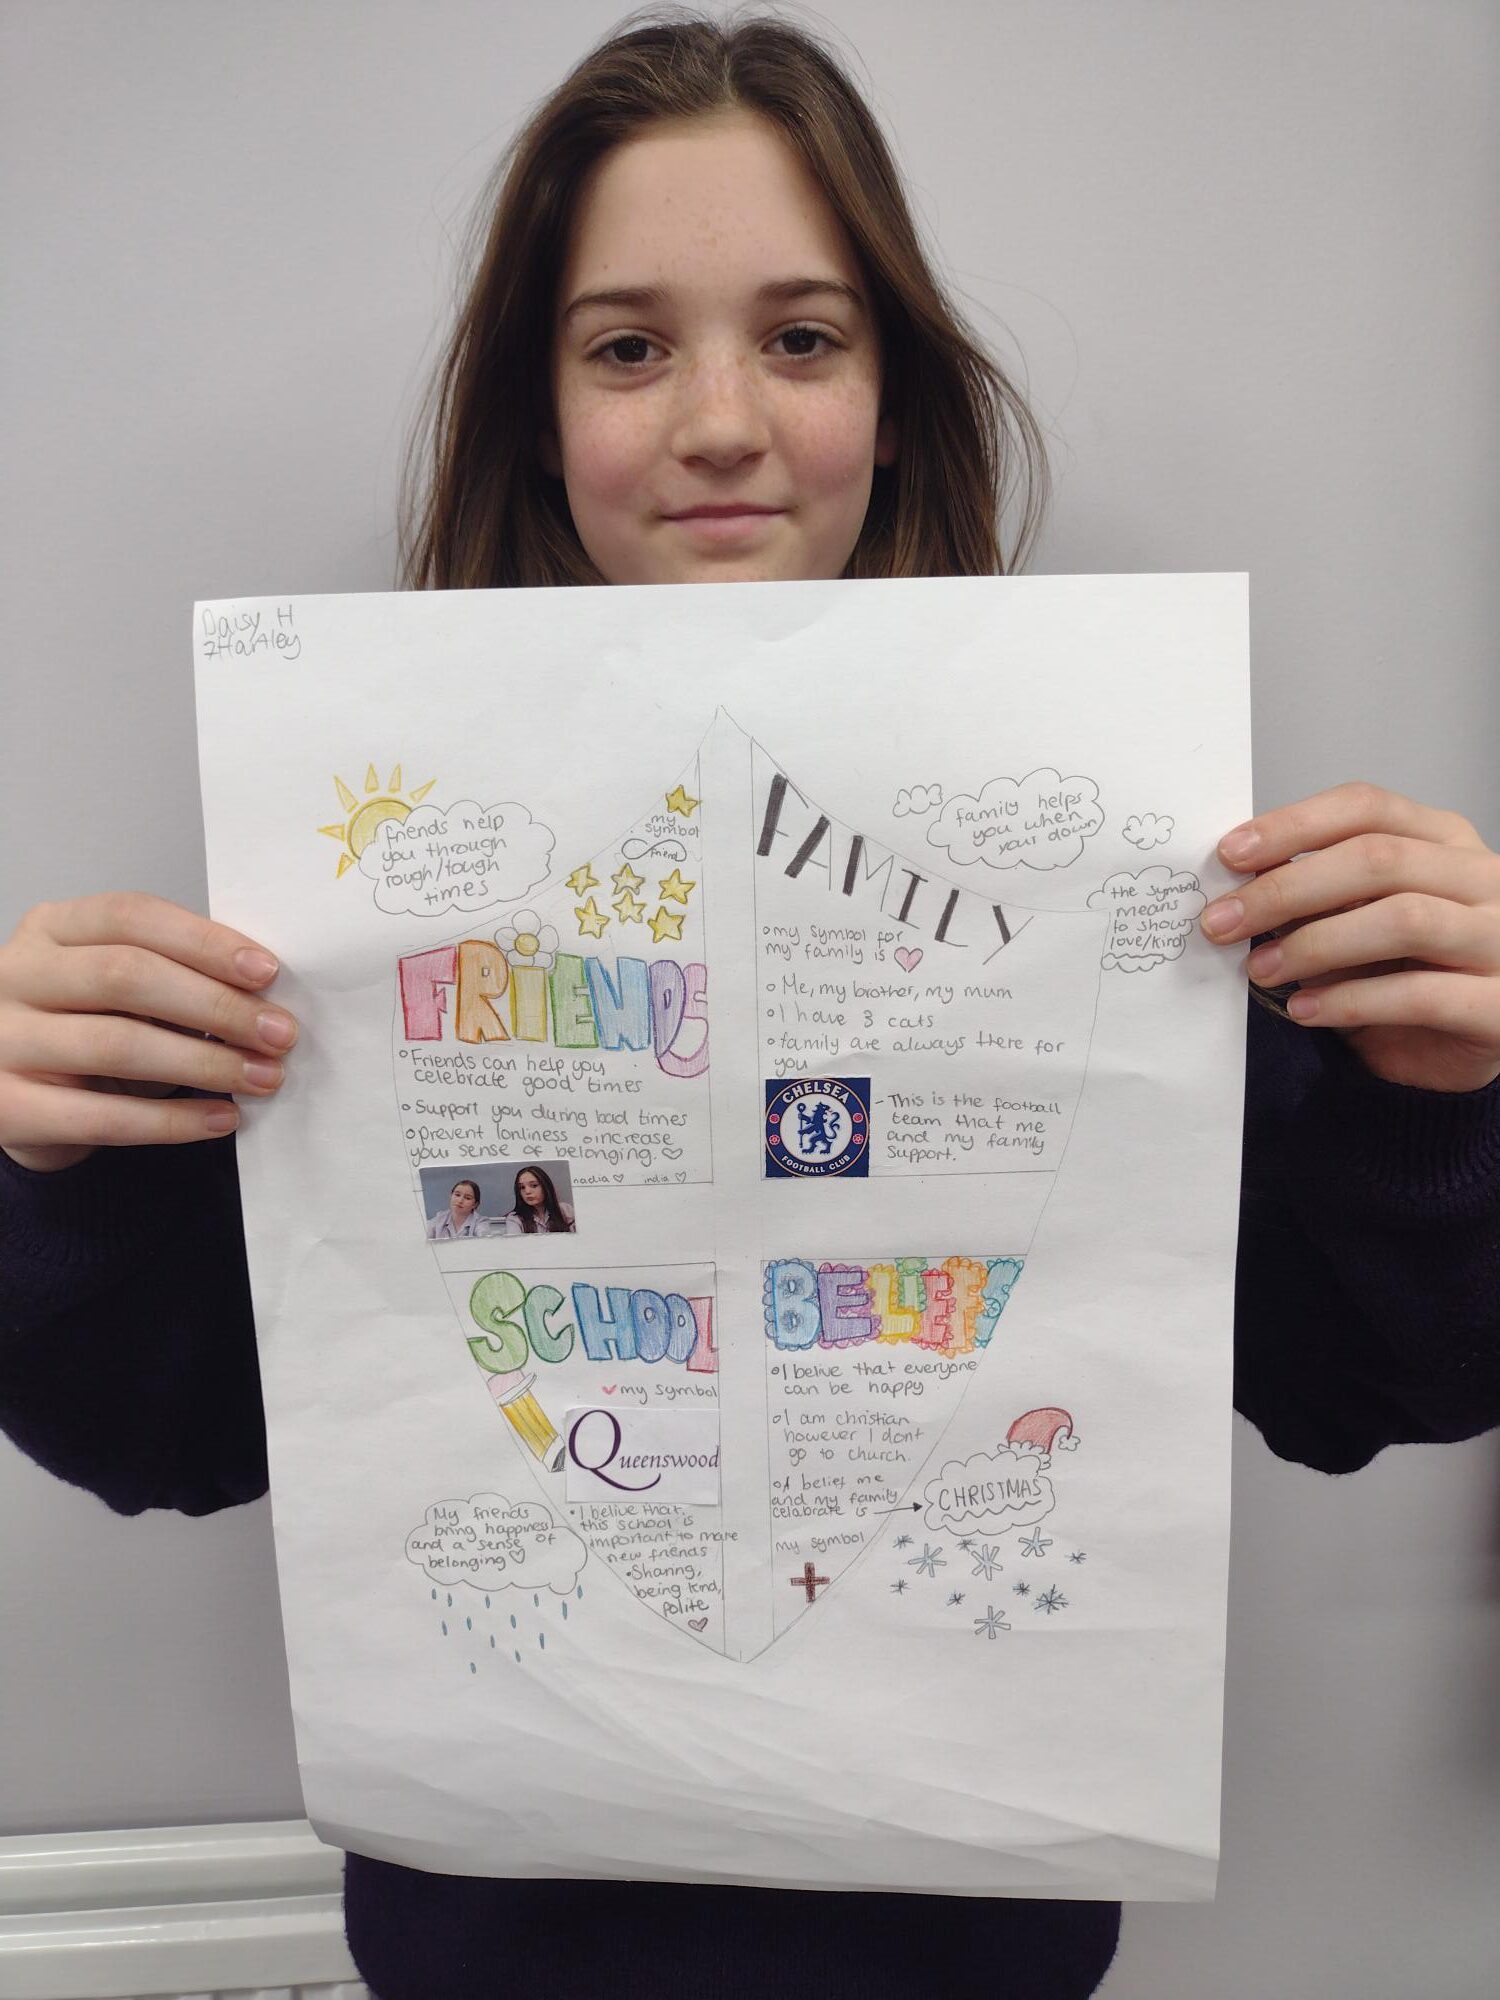 Daisy H
7Hartley
friends help
you through
rough/tough
times
my
symbol
friend
FRIENDS
Friends can help you
celebrate good times
Support you during bad times
Prevent lonliness increase
your sense of belonging.
nadia india
FAMILY
family helps
you when
your down
the symbol
means
to show
love/kind
my symbol for
my family is
Me, my brother, my mum
I have 3 cats
family are always there for
you
CHELSEA
FOOTBALL CLUB
- This is the football
team that me
and my family
support.
SCHOOL
my symbol
Queenswood
I belive that
this school is
important to make
new friends
Sharing,
being kind,
polite
My friends
bring happiness
and a sense of
belonging
BELIEFS
I belive that everyone
can be happy
I am christian
however I dont
go to church.
A belief me
and my family
celabrate is
CHRISTMAS
my symbol